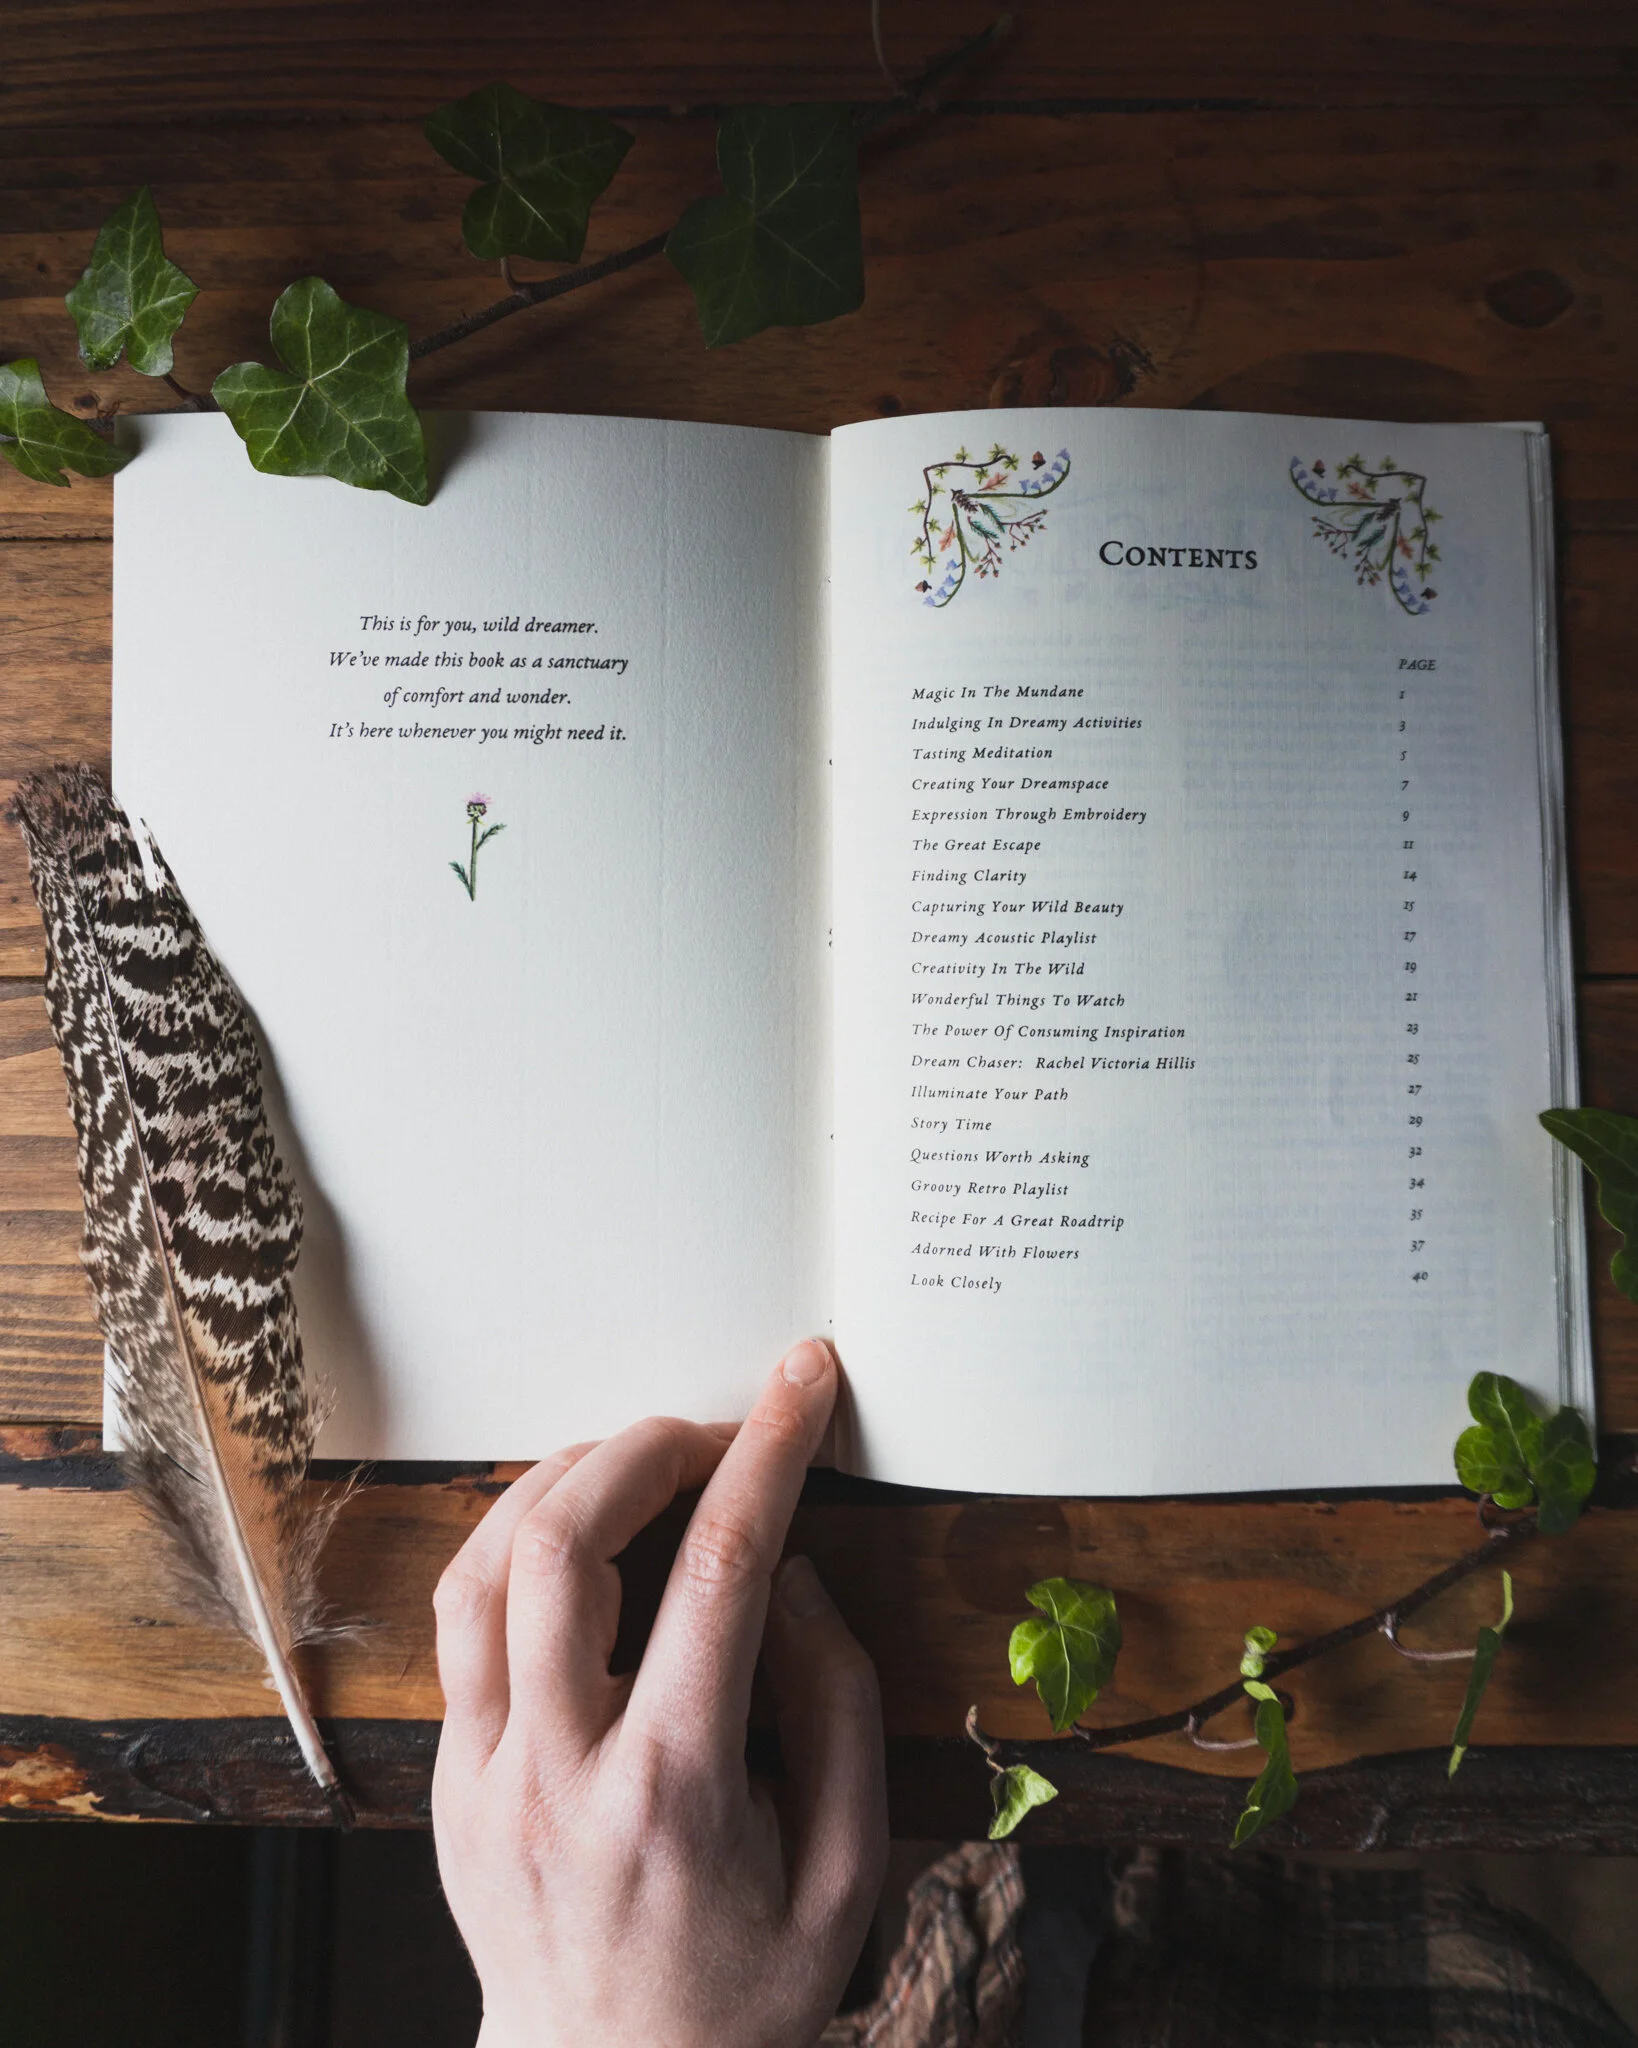 This is for you, wild dreamer.
We've made this book as a sanctuary
of comfort and wonder.
It's here whenever you might need it.
CONTENTS
PAGE
Magic In The Mundane 1
Indulging In Dreamy Activities 3
Tasting Meditation 5
Creating Your Dreamspace 7
Expression Through Embroidery 9
The Great Escape 11
Finding Clarity 14
Capturing Your Wild Beauty 15
Dreamy Acoustic Playlist 17
Creativity In The Wild 19
Wonderful Things To Watch 21
The Power Of Consuming Inspiration 23
Dream Chaser: Rachel Victoria Hillis 25
Illuminate Your Path 27
Story Time 29
Questions Worth Asking 32
Groovy Retro Playlist 34
Recipe For A Great Roadtrip 35
Adorned With Flowers 37
Look Closely 40